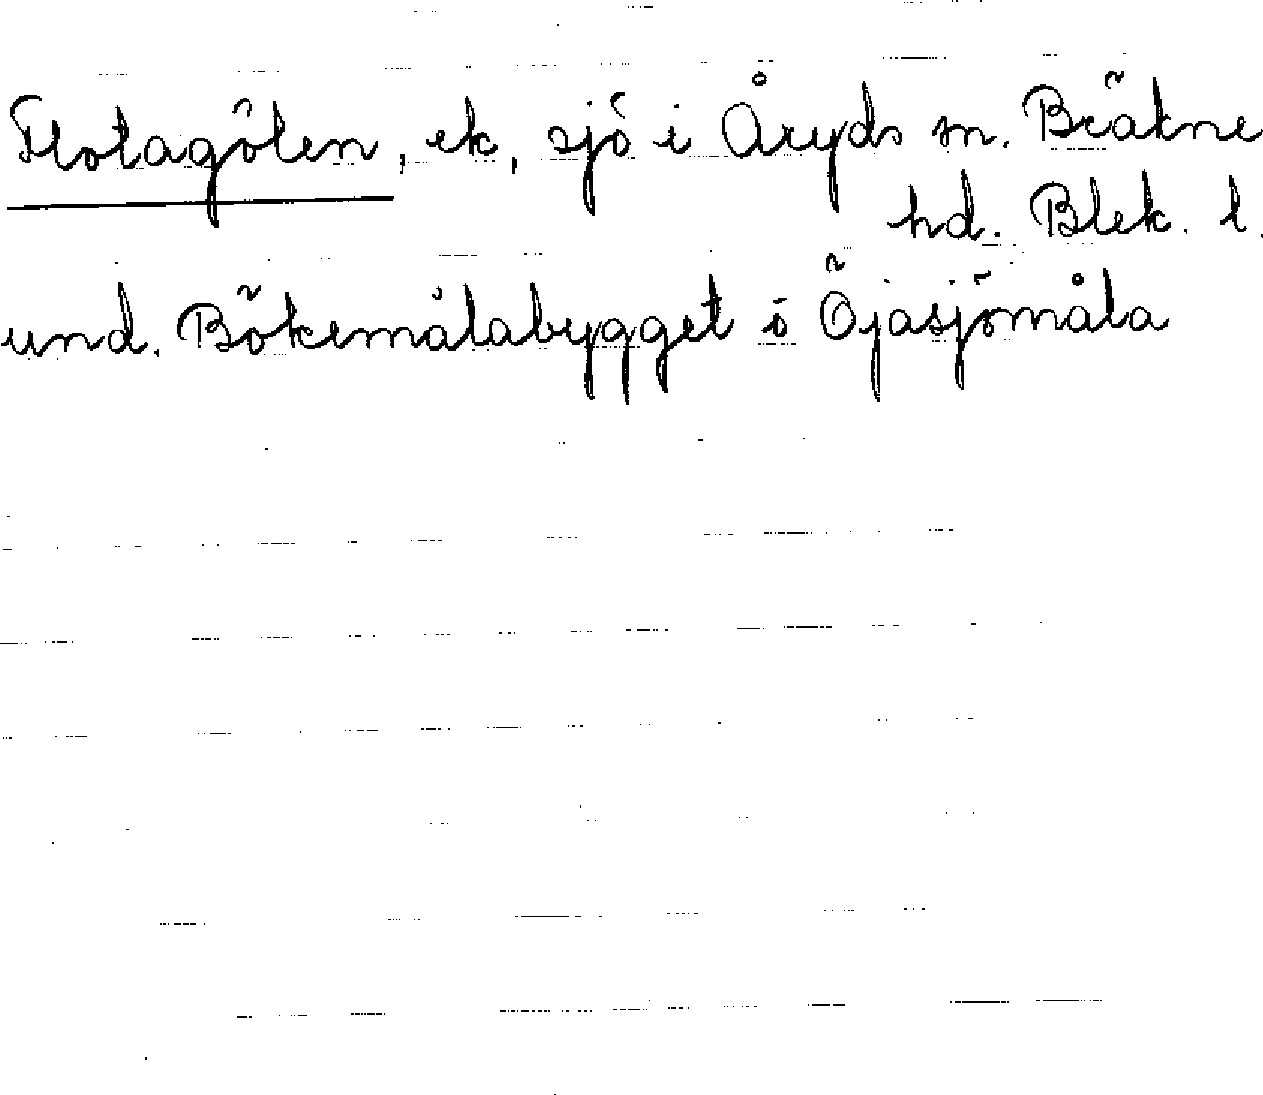 Flotagölen, ek, sjö i Åryds sn. Bräkne
hd. Blek. l.
und. Bökemålabygget ö Öjasjömåla